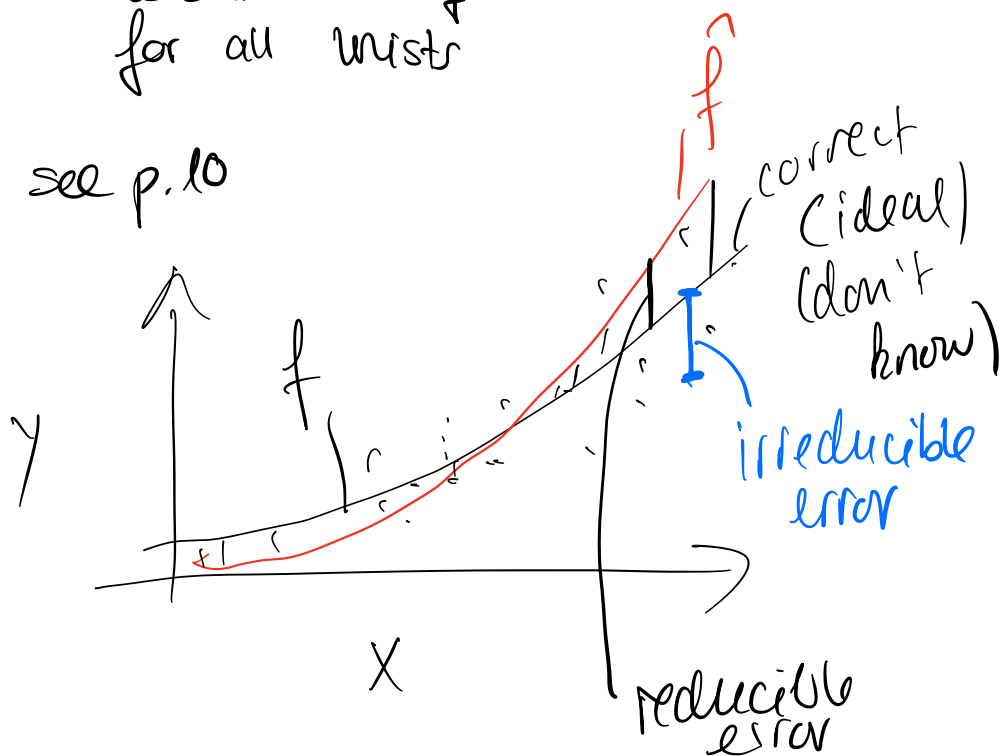 for all
see p. 10
f̂
correct
(ideal)
(don't
know)
f
Y
irreducible
error
X
reducible
error